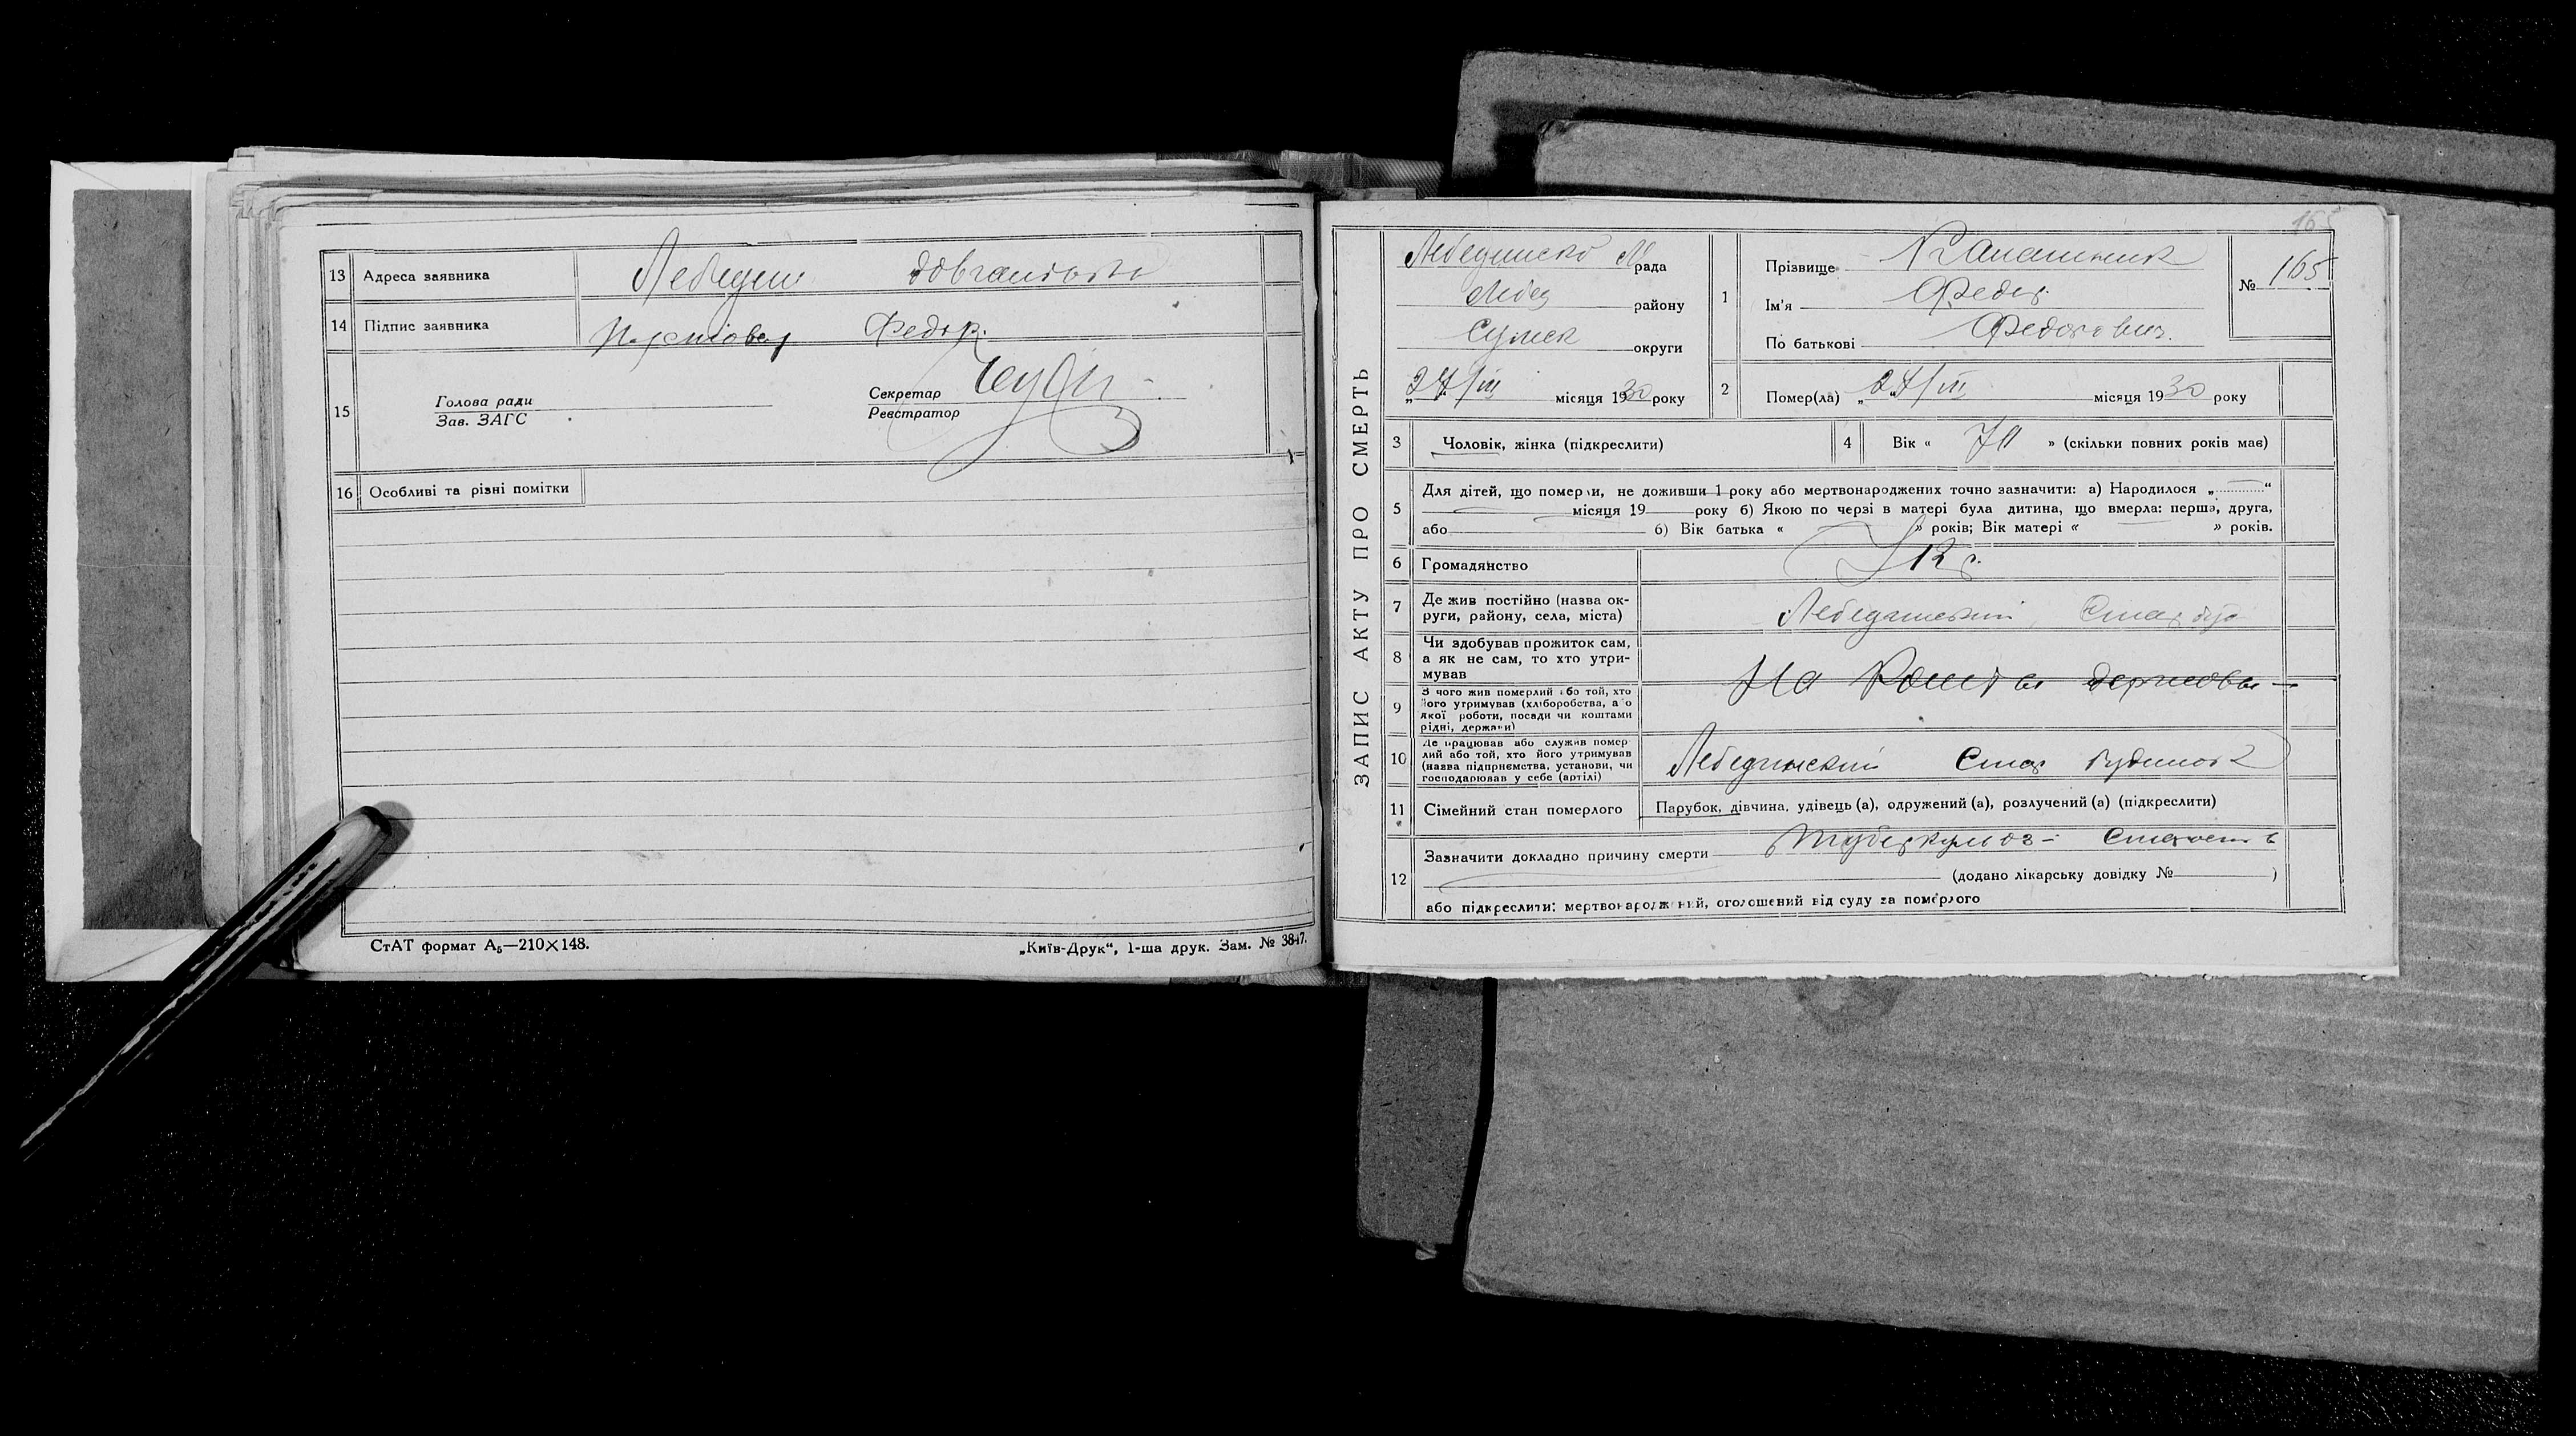 13 Адреса заявника Лебедин
14 Підпис заявника Федір.
15 Голова ради
Зав. ЗАГС
Секретар
Реєстратор
16 Особливі та різні помітки
СтАТ формат А₅—210×148.
„Київ-Друк“, 1-ша друк. Зам. № 3847.
165
ЗАПИС АКТУ ПРО СМЕРТЬ
Лебединсько М рада
Лебед району
Сумськ округи
„27/III місяця 1930 року
1 Прізвище
Ім'я Федір
По батькові Федорович.
№ 165
2 Помер(ла) „27/III місяця 1930 року
3 Чоловік, жінка (підкреслити)
4 Вік « 70 » (скільки повних років має)
5 Для дітей, що померли, не доживши 1 року або мертвонароджених точно зазначити: а) Народилося „ “
місяця 19 року б) Якою по черзі в матері була дитина, що вмерла: перша, друга,
або б) Вік батька « » років; Вік матері « » років.
6 Громадянство УКР.
7 Де жив постійно (назва ок-
руги, району, села, міста) Лебединський
8 Чи здобував прожиток сам,
а як не сам, то хто утри-
мував На кошти держави
9 З чого жив померлий або той, хто
його утримував (хліборобства, або
якої роботи, посади чи коштами
рідні, держави)
10 Де працював або служив помер
лий або той, хто його утримував
(назва підприємства, установи, чи
господарював у себе (артілі) Лебединский Стар будинок
11 Сімейний стан померлого Парубок, дівчина, удівець (а), одружений (а), розлучений (а) (підкреслити)
12 Зазначити докладно причину смерти туберкульоз - старость
(додано лікарську довідку № )
або підкреслити: мертвонароджений, оголошений від суду за померлого